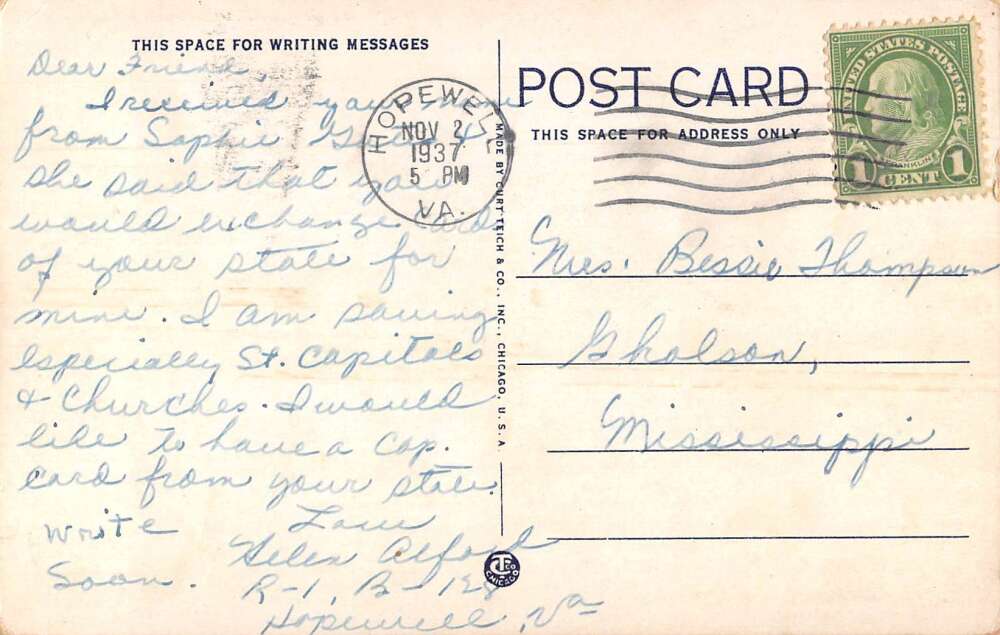 THIS SPACE FOR WRITING MESSAGES
Dear Friend,
I received your name
from Sophie
she said that you
would exchange cards
of your state for
mine. I am saving
especially St. Capitols
& Churches. I would
like to have a Cap.
card from your state.
Write
Soon.
Love
Helen Alford
R-1, B-128
Hopewell, Va
HOPEWELL
NOV 2
1937
5 PM
VA.
MADE BY CURT TEICH & CO., INC., CHICAGO, U.S.A.
CT CO
CHICAGO
POST CARD
THIS SPACE FOR ADDRESS ONLY
UNITED STATES POSTAGE
FRANKLIN
1 CENT 1
Mrs. Bessie Thompson
Gholson,
Mississippi